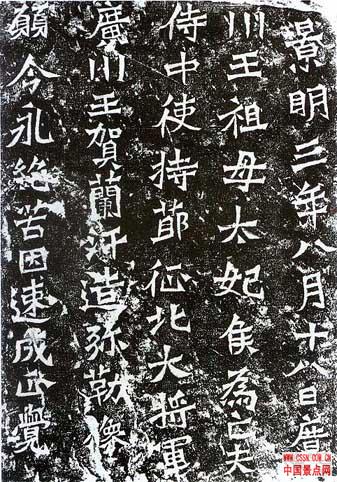 景明三年八月十八日廣
川王祖母太妃侯為亡夫
侍中使持節征北大將軍
廣川王賀蘭汗造弥勒像
願令永絕苦因速成正覺
WWW.CSSN.COM.CN
中国景点网